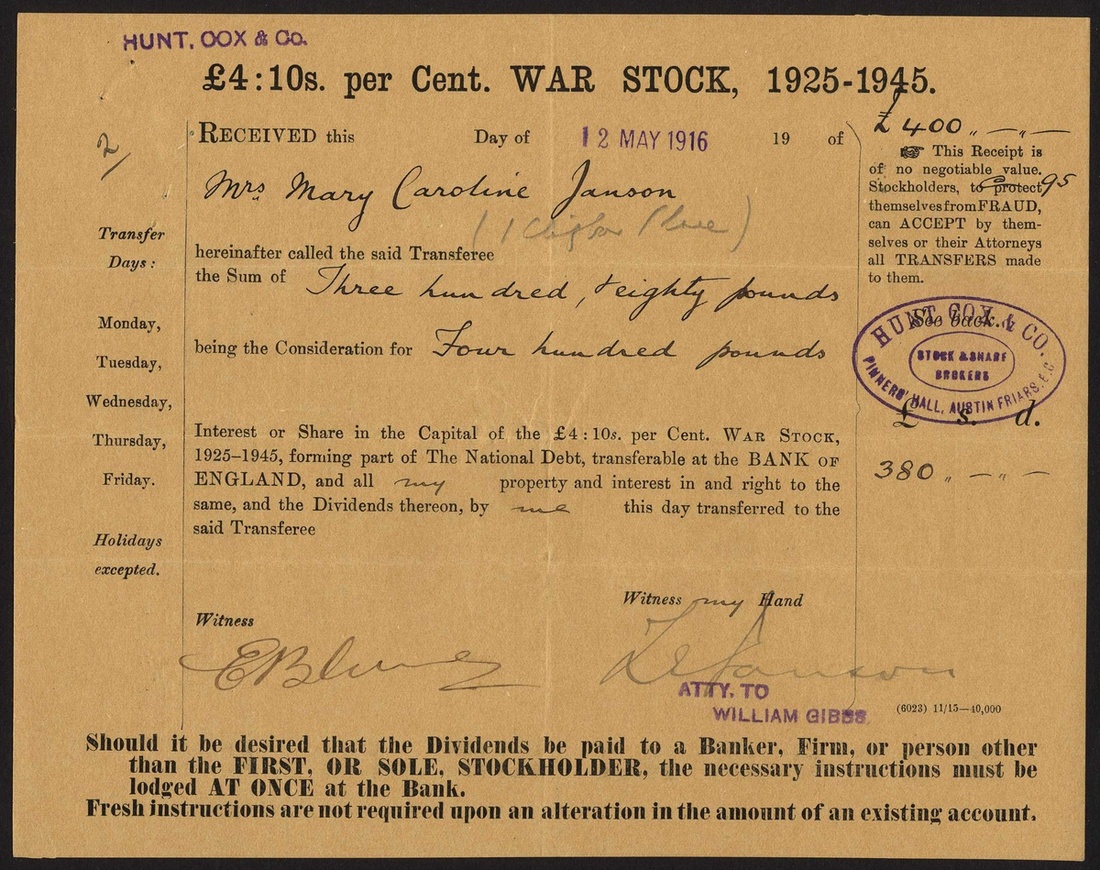 HUNT, COX & Co.
£4:10s. per Cent. WAR STOCK, 1925-1945.
2/
RECEIVED this Day of 12 MAY 1916 19 of
Mrs Mary Caroline Janson
hereinafter called the said Transferee
the Sum of Three hundred, & eighty pounds
being the Consideration for Four hundred pounds
Interest or Share in the Capital of the £4:10s. per Cent. WAR STOCK,
1925-1945, forming part of The National Debt, transferable at the BANK OF
ENGLAND, and all my property and interest in and right to the
same, and the Dividends thereon, by me this day transferred to the
said Transferee
Witness my Hand
Witness
ATTY. TO
WILLIAM GIBBS
(6023) 11/15—40,000
Transfer
Days:
Monday,
Tuesday,
Wednesday,
Thursday,
Friday.
Holidays
excepted.
£400 „ — „ —
☞ This Receipt is
of no negotiable value.
Stockholders, to protect
95
themselves from FRAUD,
can ACCEPT by them-
selves or their Attorneys
all TRANSFERS made
to them.
See back.
HUNT, COX & CO.
STOCK & SHARE
BROKERS
PINNERS' HALL, AUSTIN FRIARS, E.C.
£ s. d.
380 „ — „ —
Should it be desired that the Dividends be paid to a Banker, Firm, or person other
than the FIRST, OR SOLE, STOCKHOLDER, the necessary instructions must be
lodged AT ONCE at the Bank.
Fresh instructions are not required upon an alteration in the amount of an existing account.